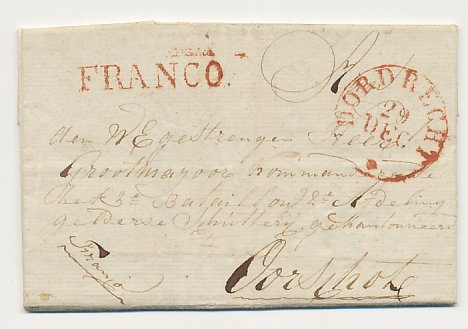 FRANCO
DORDRECHT
29
DEC
Aan
den WEgestrengen Heer
Grootmajoor Kommanderende
het 3e Bataillon 2e Afdeling
Gelderse Schutterij gekantonneerd
Franco
Oorschot